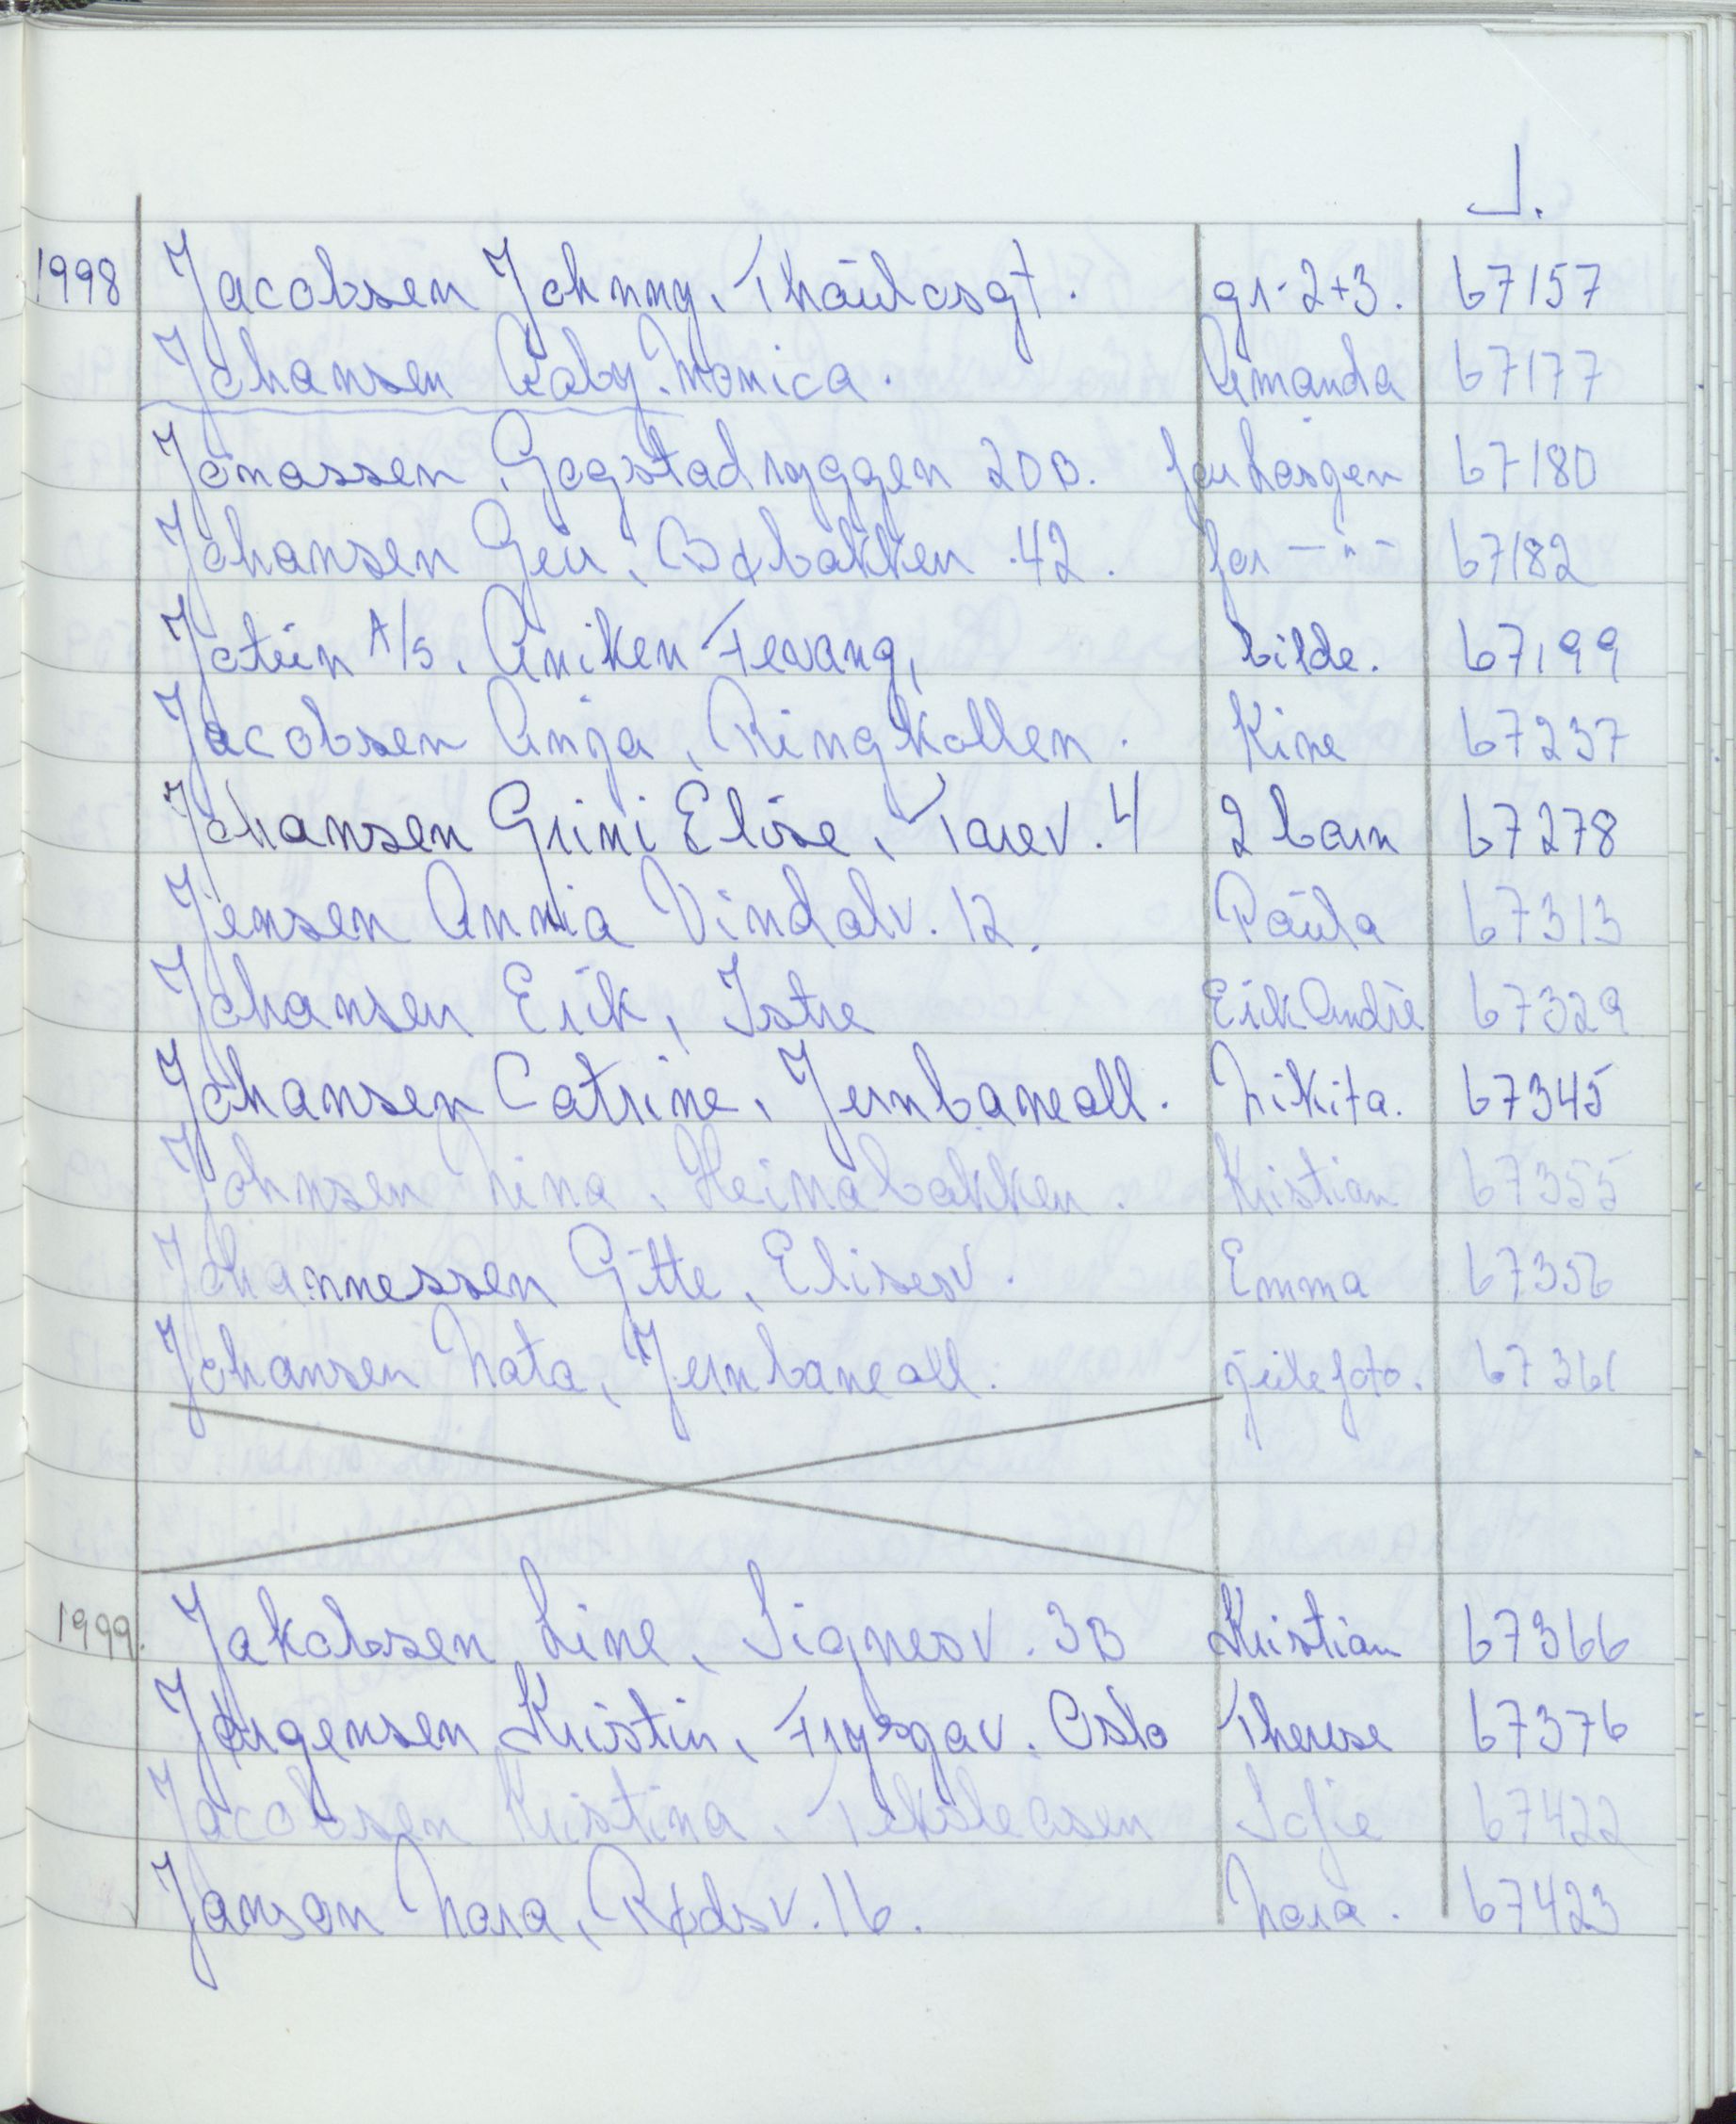 J.
1998 Jacobsen Johnny, Thaulosgt. gr. 2+3. 67157
Johansen Aaby. Monica. Amanda 67177
Jonassen, Gogstadryggen 20B. farhosgen 67180
Johansen Geir, Bøbakken .42. for — " — 67182
Jotun A/S, Aniken Fevang, bilde. 67199
Jacobsen Anja, Ringkollen. Kine 67237
Johansen Grini Elise, Tarev. 4 2 barn 67278
Jensen Annia Vindalv. 12. Paula 67313
Johansen Erik, Istre Erik André 67329
Johansen Catrine, Jernbaneall. Nikita. 67345
Johnsen Nina, Heimabakken. Kristian 67355
Johannessen Gitte, Elisesv. Emma 67356
Johansen Nata, Jernbaneall. julefoto. 67361
1999. Jakobsen Line, Signesv. 3B Kristian 67366
Jørgensen Kristin, Frysgav. Oslo Therese 67376
Jacobsen Kristina, Sofie 67422
Janson Nora, Rødsv. 16. Nora. 67423